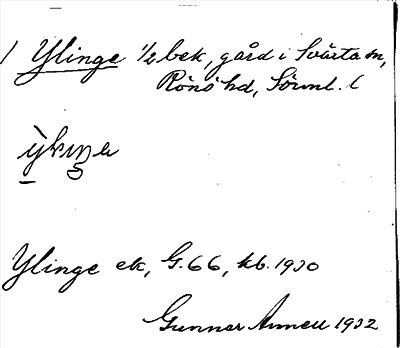 Ylinge 1/2 bek, gård i Svärta sn,
Rönö hd, Sörml. l
Ylinge ek, G.66, kb. 1930
Gunnar Annell 1932